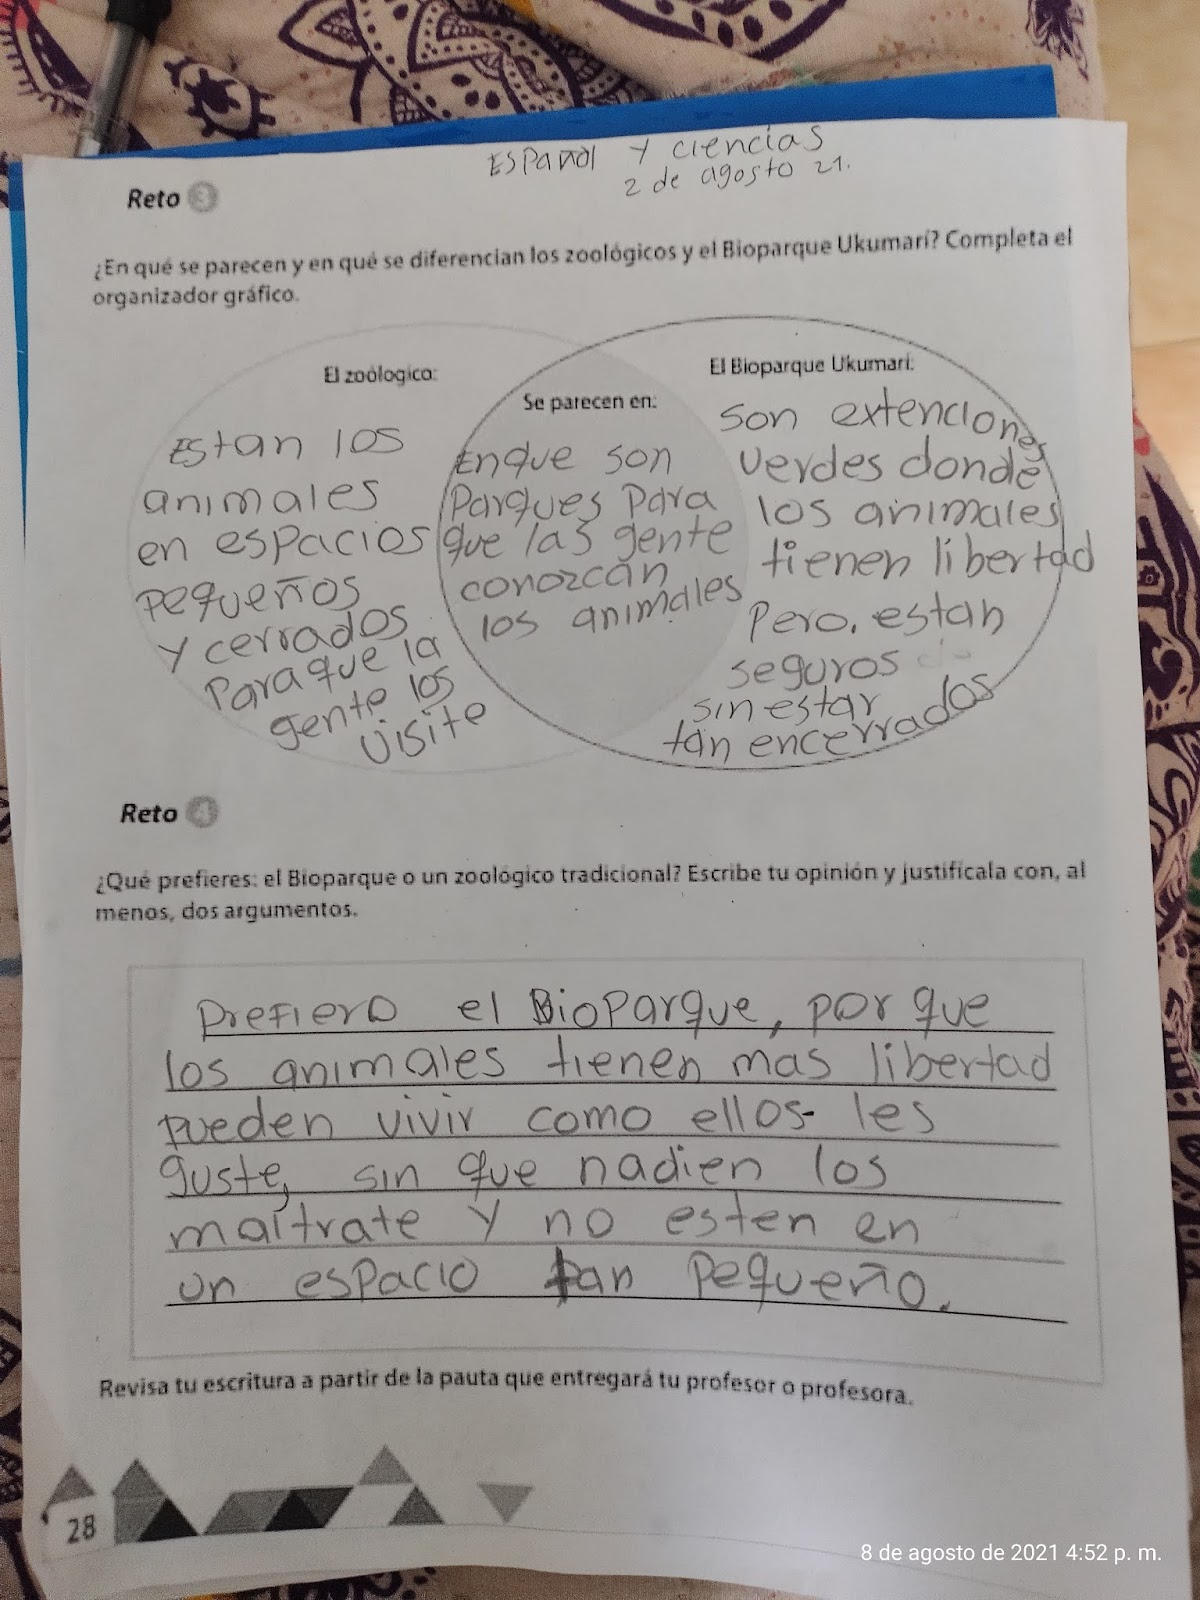 Español y ciencias
2 de agosto 21.
Reto 3
¿En qué se parecen y en qué se diferencian los zoológicos y el Bioparque Ukumarí? Completa el
organizador gráfico.
El zoólogico:
Estan los
animales
en espacios
pequeños
y cerrados
Para que la
gente los
visite
Se parecen en:
Enque son
Parques Para
que las gente
conozcan
los animales
El Bioparque Ukumari:
Son extenciones
verdes donde
los animales
tienen libertad
Pero. estan
seguros
sin estar
tan encerrados
Reto 4
¿Qué prefieres: el Bioparque o un zoológico tradicional? Escribe tu opinión y justifícala con, al
menos, dos argumentos.
Prefiero el BioParque, por que
los animales tienen mas libertad
pueden vivir como ellos les
guste, sin que nadien los
maltrate y no esten en
un espacio tan Pequeño.
Revisa tu escritura a partir de la pauta que entregará tu profesor o profesora.
28
8 de agosto de 2021 4:52 p. m.